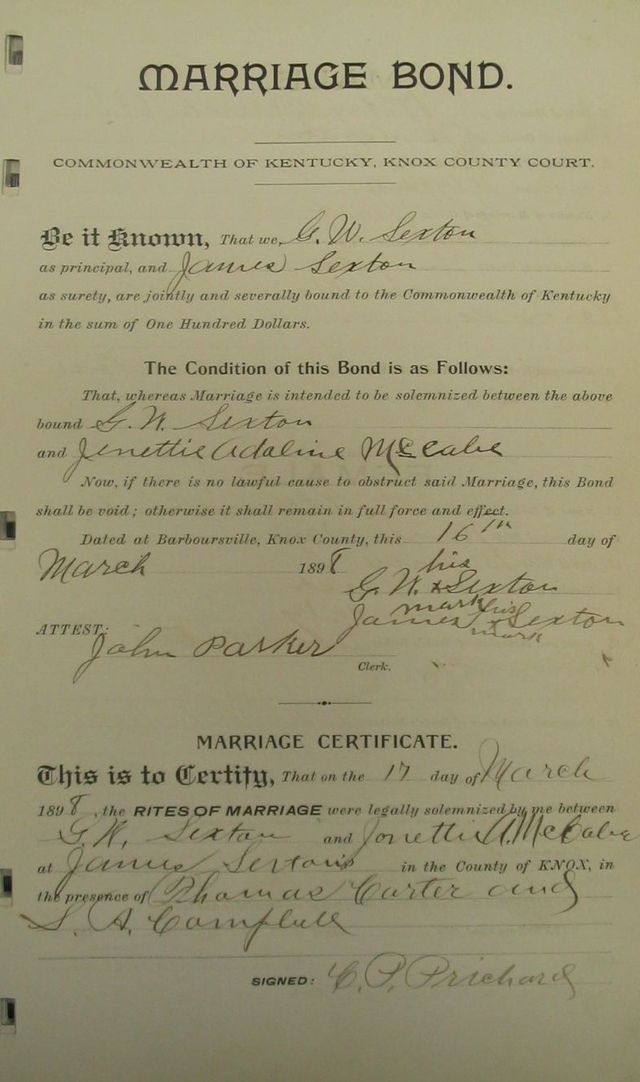 MARRIAGE BOND.
COMMONWEALTH OF KENTUCKY, KNOX COUNTY COURT.
Be it Known, That we, G. W. Sexton
as principal, and James Sexton
as surety, are jointly and severally bound to the Commonwealth of Kentucky
in the sum of One Hundred Dollars.
The Condition of this Bond is as Follows:
That, whereas Marriage is intended to be solemnized between the above
bound G. W. Sexton
and Jenettie Adaline McCabe
Now, if there is no lawful cause to obstruct said Marriage, this Bond
shall be void; otherwise it shall remain in full force and effect.
Dated at Barboursville, Knox County, this 16th day of
March 1898
his
G. W. x Sexton
mark his
James x Sexton
mark
ATTEST:
John Parker
Clerk.
MARRIAGE CERTIFICATE.
This is to Certify, That on the 17 day of March
1898, the RITES OF MARRIAGE were legally solemnized by me between
G. W. Sexton and Jonettie A. McCabe
at James Sexton's in the County of KNOX, in
the presence of Thomas Carter and
S. A. Campbell
SIGNED: C. P. Prichard